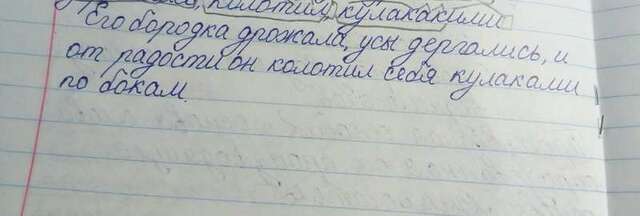 колотил, кулакакими
Его бородка дрожала, усы дергались, и
от радости он колотил себя кулаками
по бокам.